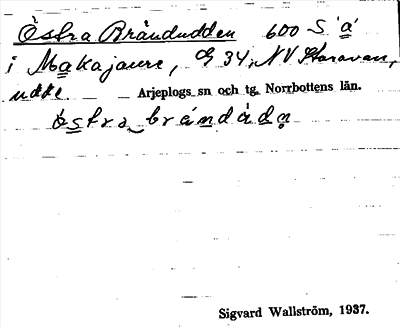 Östra Brändudden 600 S 'a'
i Makajaure, G 34, NV Storavan,
udde. Arjeplogs sn och tg. Norrbottens län.
östra brándádn
Sigvard Wallström, 1937.